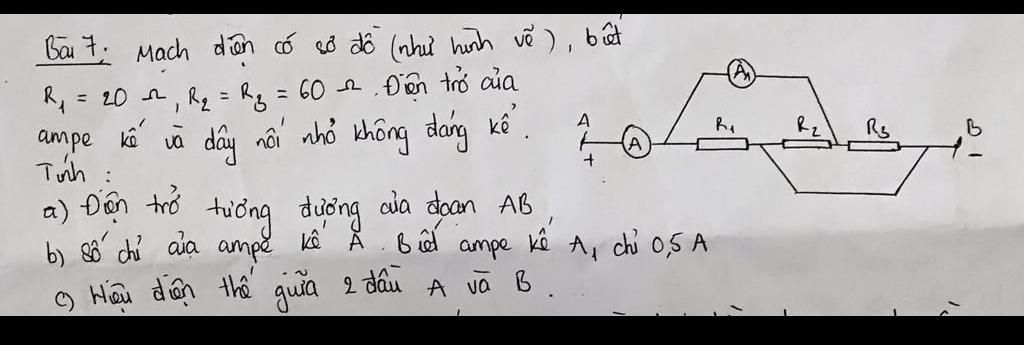 Bài 7: Mạch điện có sơ đồ (như hình vẽ), biết
R₁ = 20 Ω, R₂ = R₃ = 60 Ω. Điện trở của
ampe kế và dây nối nhỏ không đáng kể.
Tính :
a) Điện trở tương đương của đoạn AB
b) Số chỉ của ampe kế A. Biết ampe kế A₁ chỉ 0,5 A
c) Hiệu điện thế giữa 2 đầu A và B.
A₁
A
+
A
R₁
R₂
R₃
B
-